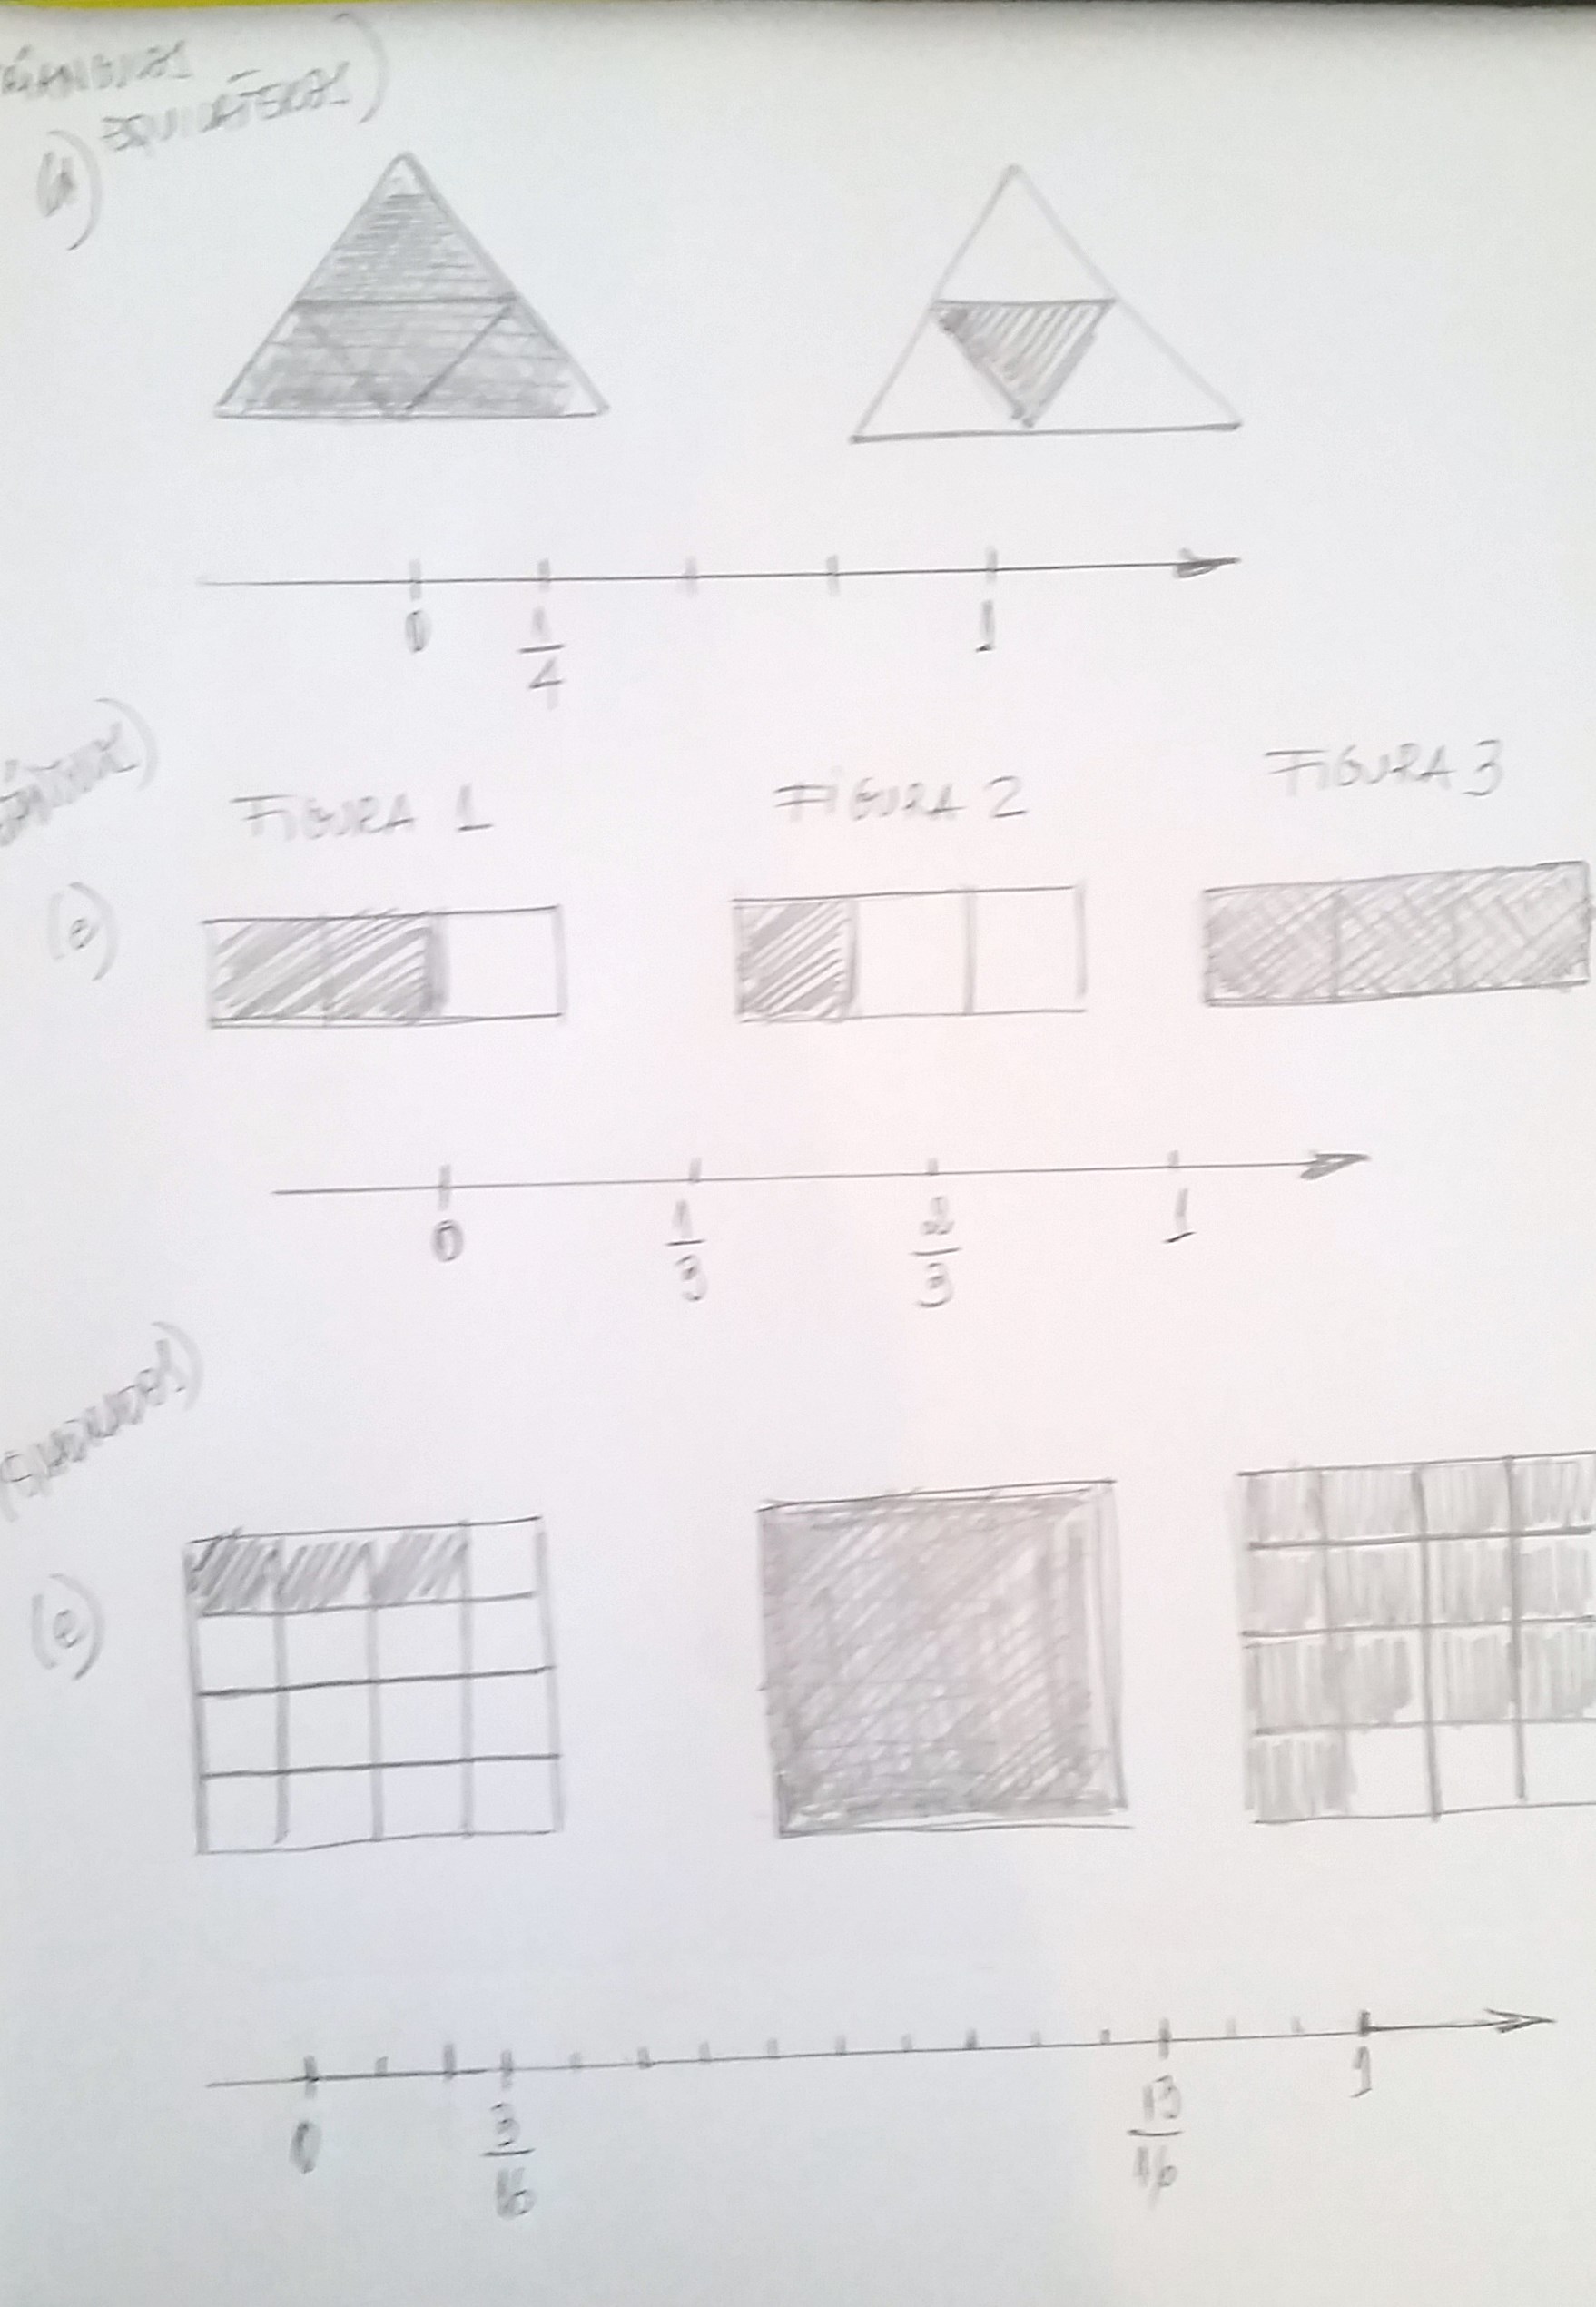 EQUILÁTEROS)
0 1/4 1
FIGURA 1 FIGURA 2 FIGURA 3
0 1/3 2/3 1
(e)
0 3/16 13/16 1